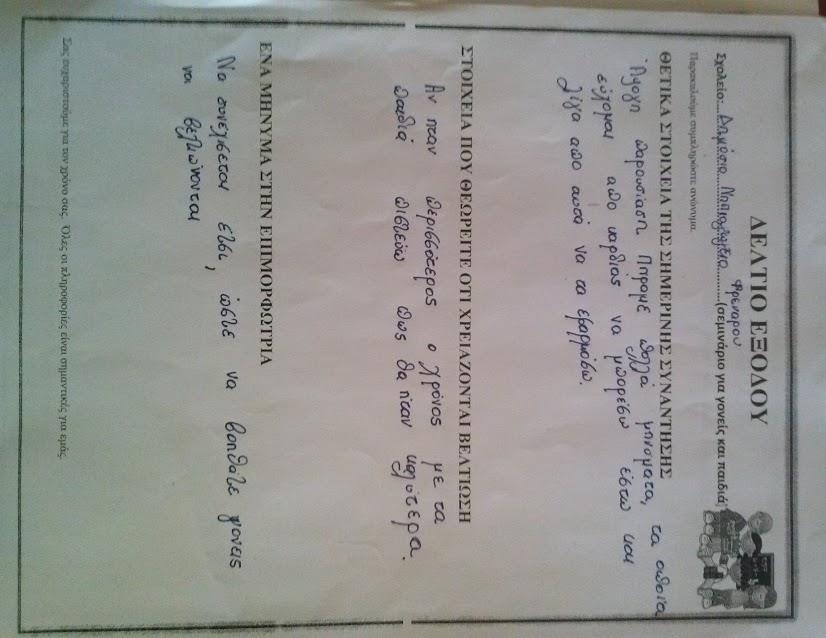 ΔΕΛΤΙΟ ΕΞΟΔΟΥ
Φρενάρου
Σχολείο:...Δημόσιο Νηπιαγωγείο...........(σεμινάριο για γονείς και παιδιά)
Παρακαλούμε συμπληρώστε ανώνυμα.
ΘΕΤΙΚΑ ΣΤΟΙΧΕΙΑ ΤΗΣ ΣΗΜΕΡΙΝΗΣ ΣΥΝΑΝΤΗΣΗΣ
Άψογη παρουσίαση Πήραμε πολλά μηνύματα, τα οποία
εύχομαι απο καρδιας να μπορέσω έστω και
λίγα απο αυτά να τα εφαρμόσω.
ΣΤΟΙΧΕΙΑ ΠΟΥ ΘΕΩΡΕΙΤΕ ΟΤΙ ΧΡΕΙΑΖΟΝΤΑΙ ΒΕΛΤΙΩΣΗ
Αν ηταν περισσότερος ο χρόνος με τα
παιδιά πιστεύω πως θα ήταν καλύτερα.
ΕΝΑ ΜΗΝΥΜΑ ΣΤΗΝ ΕΠΙΜΟΡΦΩΤΡΙΑ
Να συνεχίσεται έτσι, ώστε να βοηθάτε γονείς
να βελτιώνονται
Σας ευχαριστούμε για τον χρόνο σας. Όλες οι πληροφορίες είναι σημαντικές για εμάς.